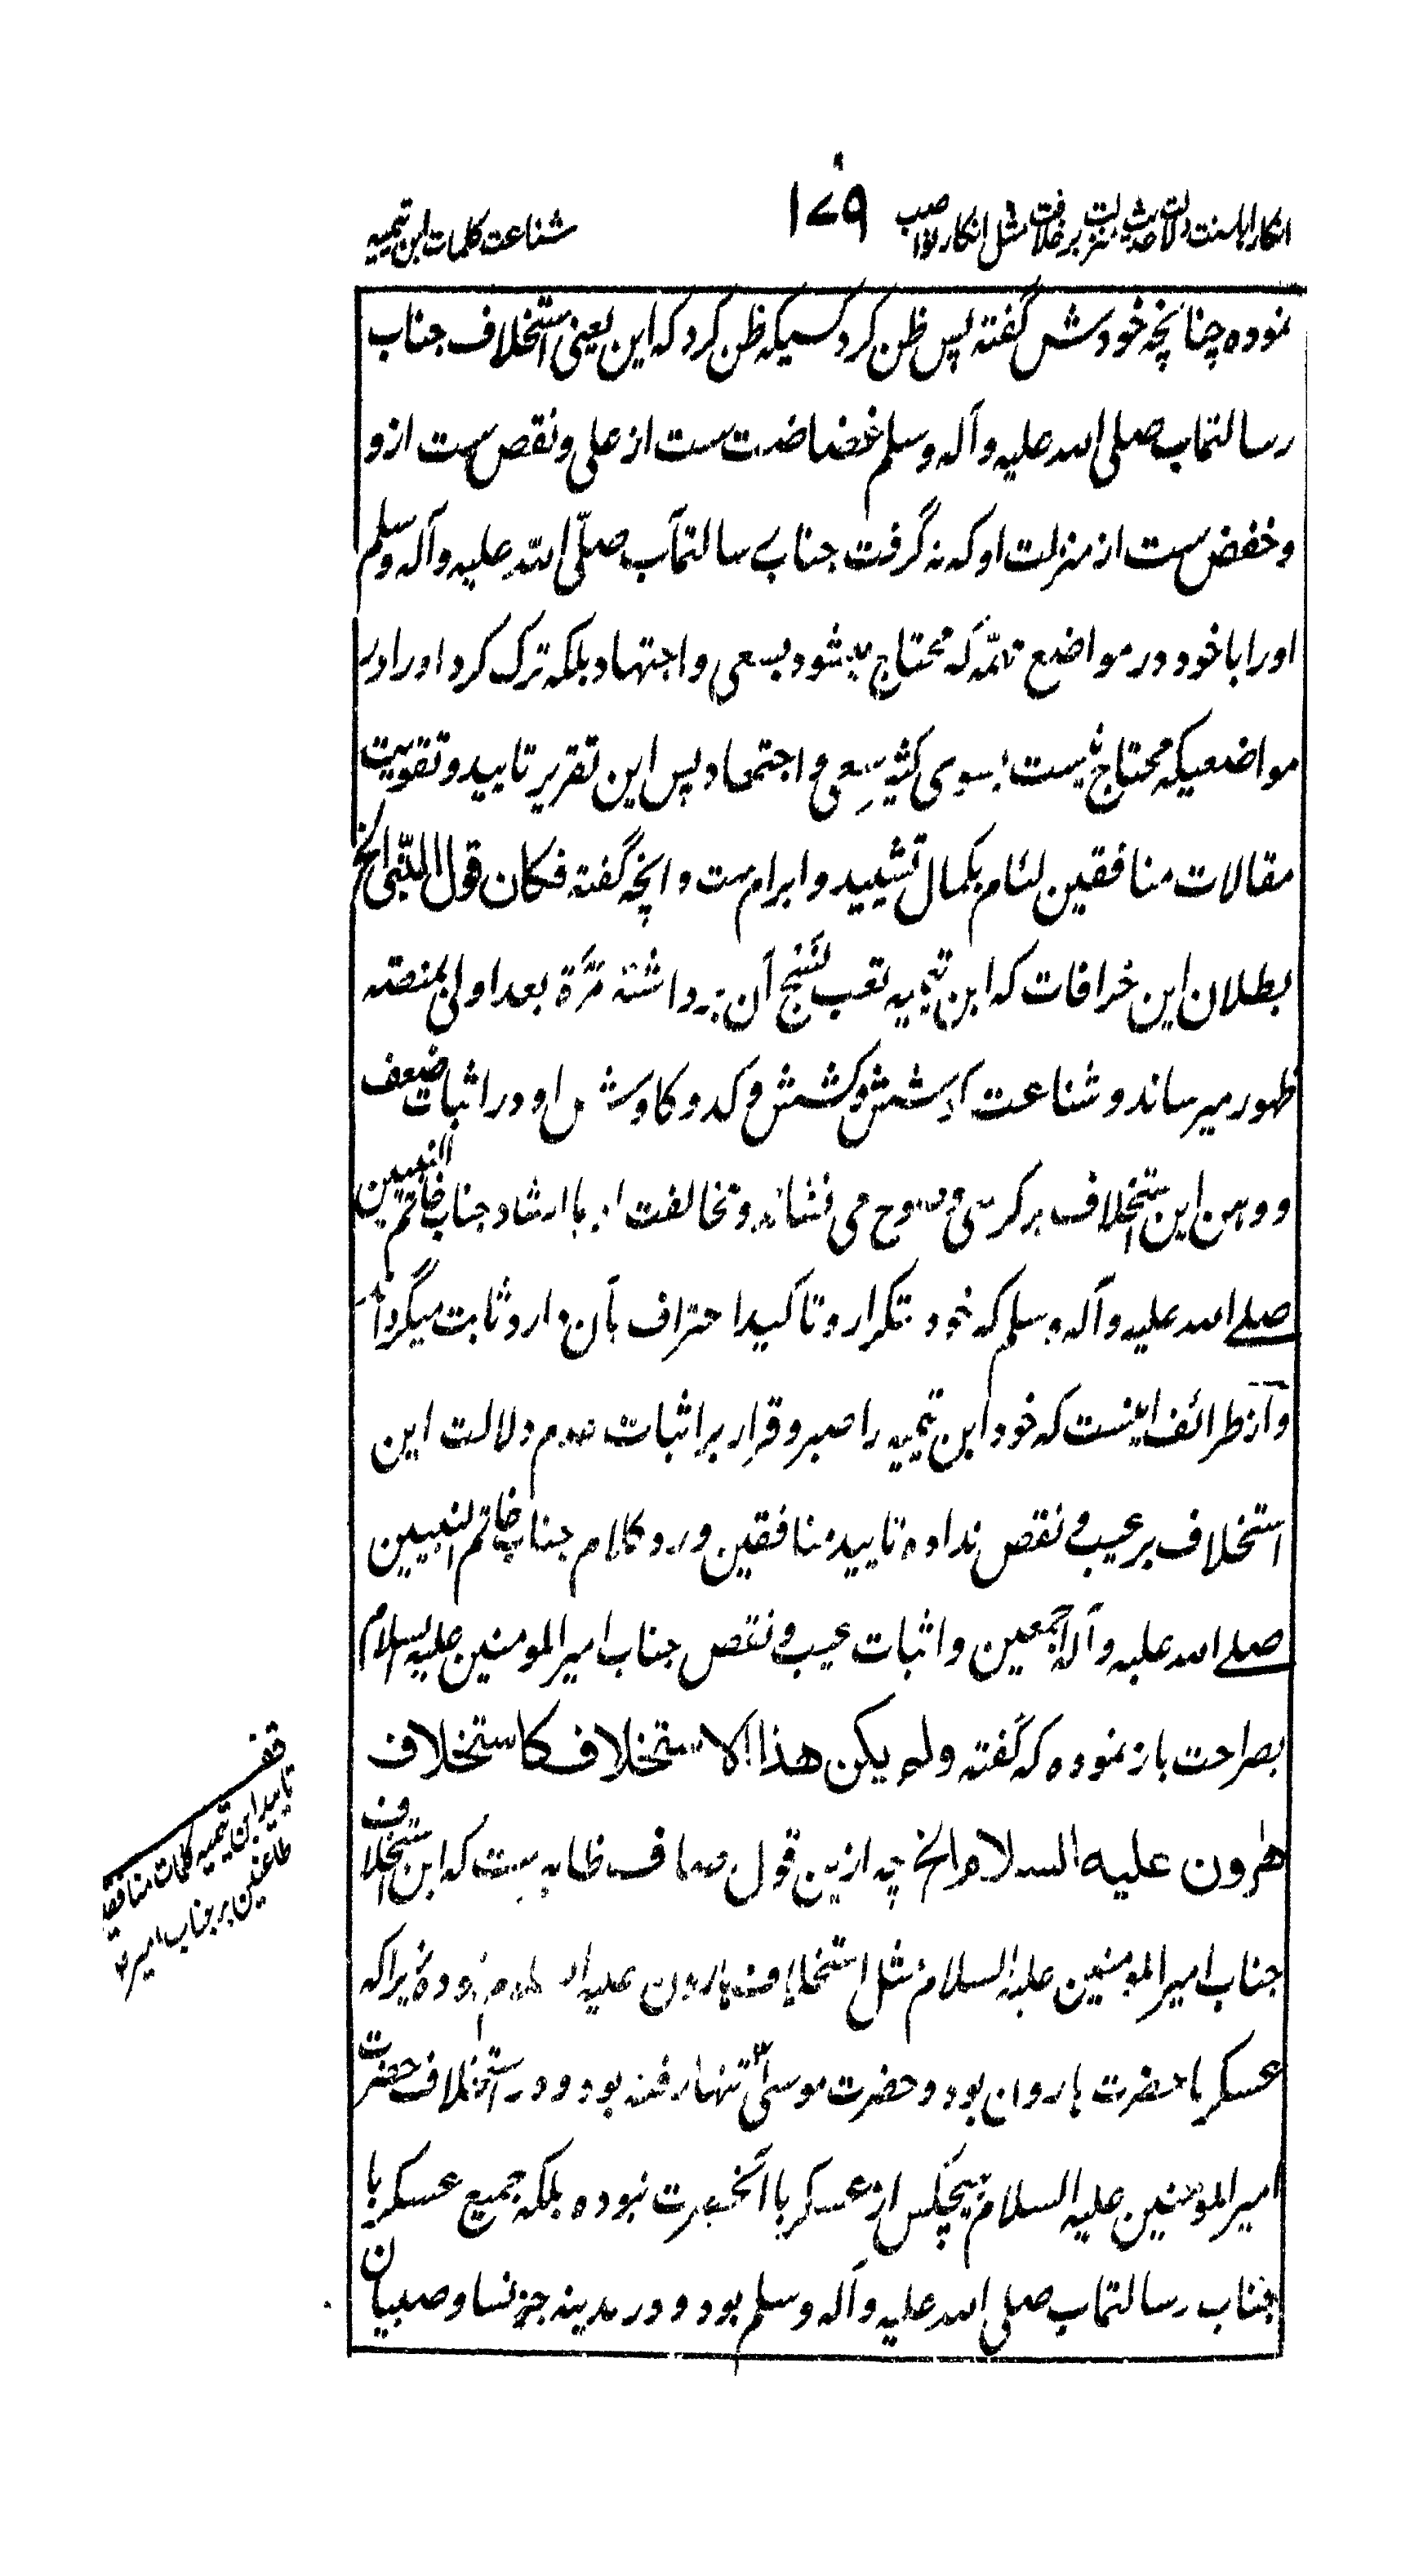 انکار اہلسنت دلالت حدیث منزلت بر خلافت مثل انکار نواصب
۱۷۹
شناعت کلمات ابن تیمیه
نموده چنانچه خودش گفته پس ظن کرد کسیکه ظن کرد که این یعنی استخلاف جناب
رسالتمآب صلی الله علیه وآله وسلم غضاضت ست از علی و نقص ست ازو
و خفض ست از منزلت او که نه گرفت جناب رسالتمآب صلّی الله علیه وآله وسلم
اورا با خود در مواضع مهمّه که محتاج میشود بسعی و اجتهاد بلکه ترک کرد اورا در
مواضعیکه محتاج نیست بسوی کثیر سعی و اجتهاد پس این تقریر تایید و تقویت
مقالات منافقین لئام بکمال تشیید و ابرام ست و آنچه گفته فکان قول النّبی الخ
بطلان این خرافات که ابن تیمیه تعب نسج آن برداشته مرّة بعد اولی بمنصّه
ظهور میرساند و شناعت کوشش و کشش و کد و کاوش او در اثبات ضعف
و وهن این استخلاف بر کرسی وضوح می نشاند و مخالفت او با ارشاد جناب خاتم النبیین
صلے الله علیه وآله وسلم که خود بتکرار و تاکید اعتراف بآن دارد ثابت میگرداند
و از طرائف اینست که خود ابن تیمیه را صبر و قرار بر اثبات عدم دلالت این
استخلاف بر عیب و نقص نداده تایید منافقین و رد کلام جناب خاتم النبیین
صلے الله علیه وآله اجمعین و اثبات عیب و نقص جناب امیر المومنین علیه السلام
بصراحت باز نموده که گفته ولم یکن هذا الاستخلاف کاستخلاف
هٰرون علیه السلام الخ چه ازین قول صاف ظاہر ست که این استخلاف
جناب امیر المومنین علیه السلام مثل استخلاف ہارون علیه السلام نبوده زیراکه
عسکر با حضرت ہارون بود و حضرت موسیٰ تنها رفته بود و در استخلاف حضرت
امیر المومنین علیه السلام ہیچکس از عسکر با آنحضرت نبوده بلکه جمیع عسکر با
جناب رسالتمآب صلی الله علیه وآله وسلم بود و در مدینه جز نسا و صبیان
قف
تایید ابن تیمیه کلمات منافقین
طاعنین بر جناب امیر